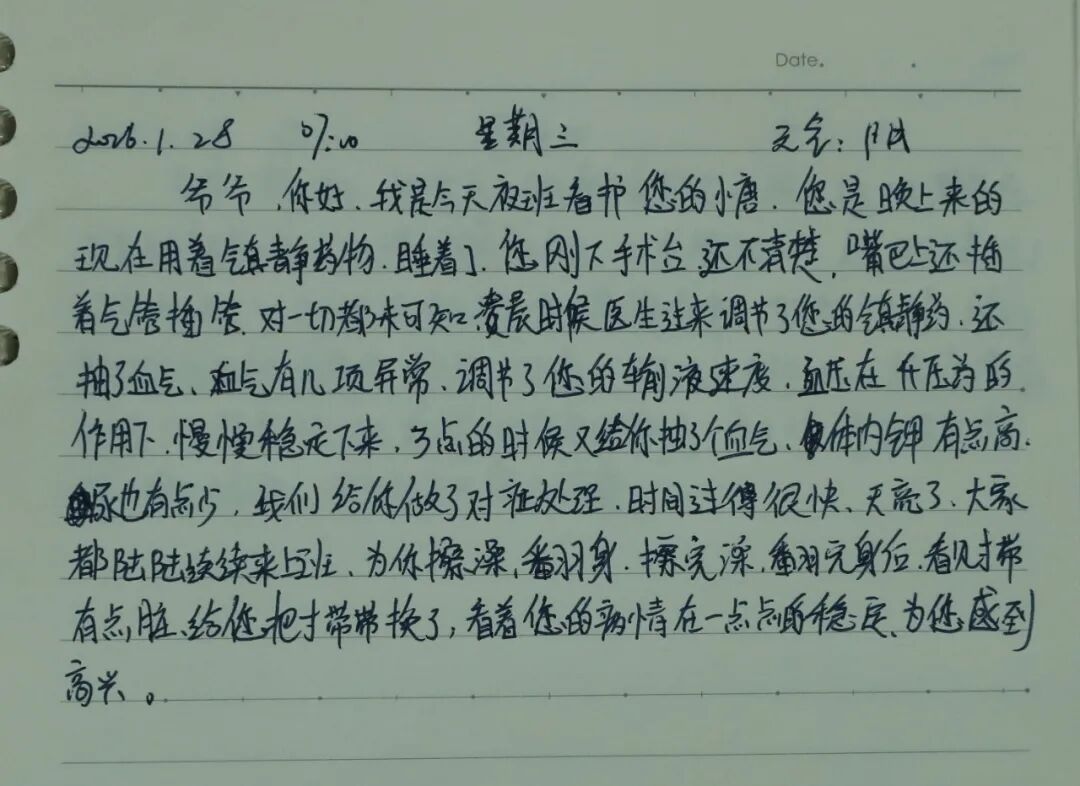 Date.
2026.1.28 07:00 星期三 天气：阴
爷爷，你好，我是今天夜班看护您的小唐，您是晚上来的
现在用着镇静药物，睡着了，您刚下手术台，还不清楚，嘴巴上还插
着气管插管，对一切都未可知，凌晨时候医生过来调节了您的镇静药，还
抽了血气、血气有几项异常，调节了您的输液速度，血压在升压药的
作用下，慢慢稳定下来，3点的时候又给你抽了个血气、体内钾有点高，
尿也有点少，我们给你做了对症处理，时间过得很快、天亮了，大家
都陆陆续续来上班，为你擦澡，翻身，擦完澡，翻完身后，看见寸带
有点脏，给您把寸带带换了，看着您的病情在一点点的稳定、为您感到
高兴。